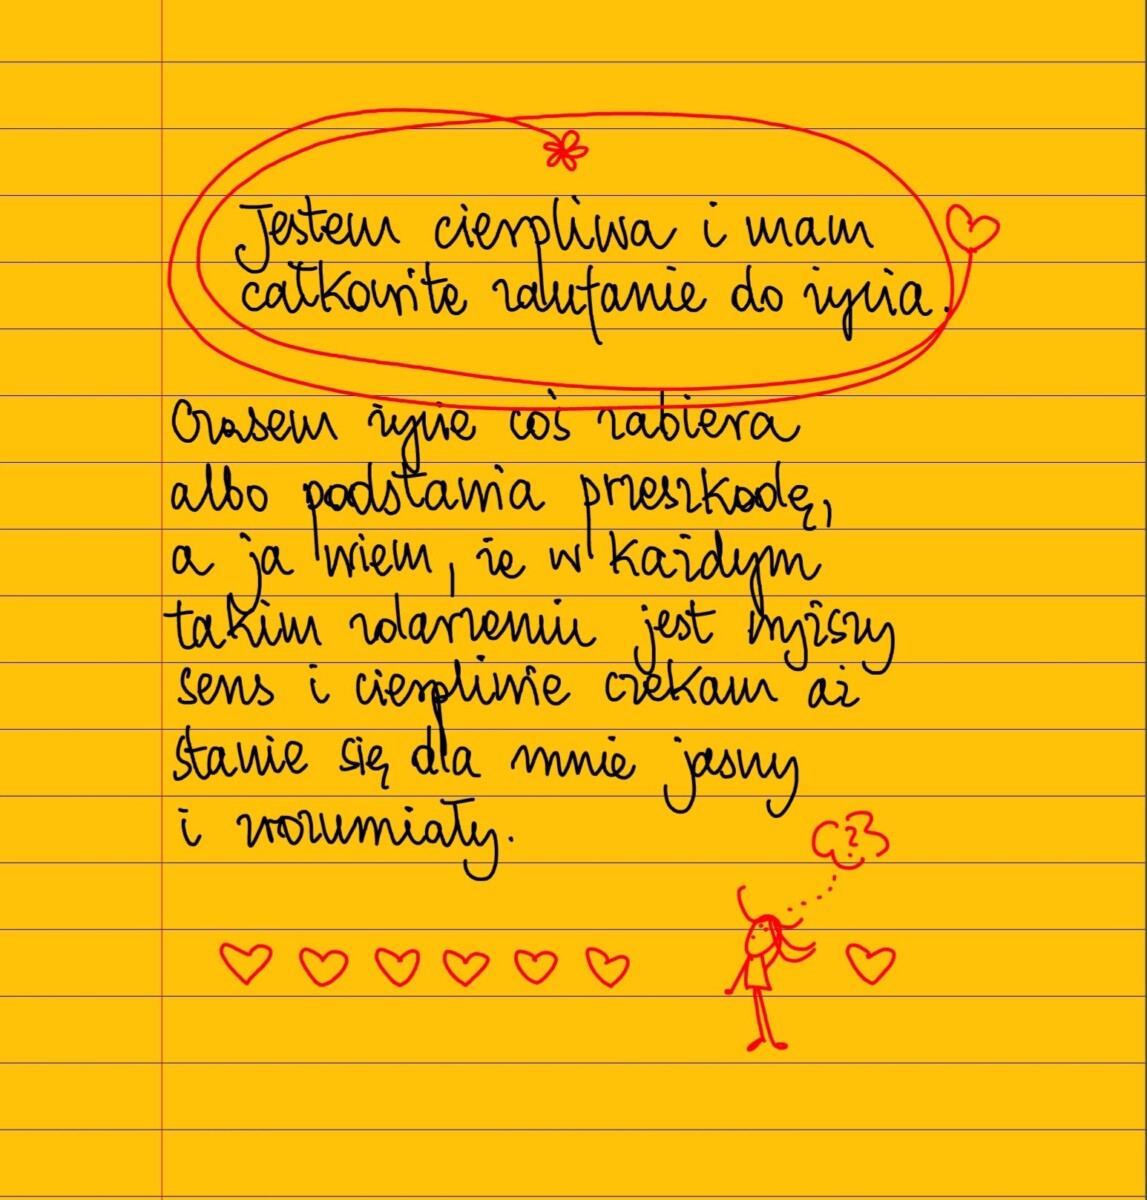 Jestem cierpliwa i mam
całkowite zaufanie do życia.
Czasem życie coś zabiera
albo podstawia przeszkodę,
a ja wiem, że w każdym
takim zdarzeniu jest wyższy
sens i cierpliwie czekam aż
stanie się dla mnie jasny
i zrozumiały.
?